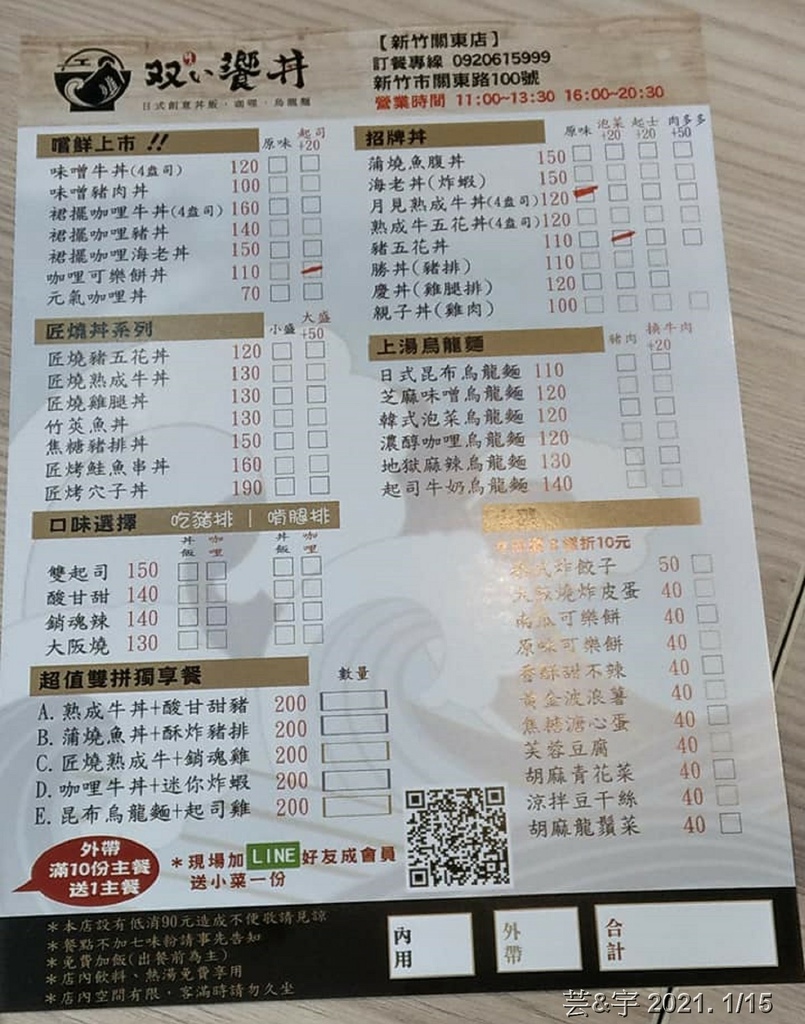 双い饗丼
日式創意丼飯‧咖哩‧烏龍麵
【新竹關東店】
訂餐專線 0920615999
新竹市關東路100號
營業時間 11:00~13:30 16:00~20:30
嚐鮮上市 !! 原味 起司+20
味噌牛丼(4盎司) 120
味噌豬肉丼 100
裙擺咖哩牛丼(4盎司) 160
裙擺咖哩豬丼 140
裙擺咖哩海老丼 150
咖哩可樂餅丼 110
元氣咖哩丼 70
匠燒丼系列 小盛 大盛+50
匠燒豬五花丼 120
匠燒熟成牛丼 130
匠燒雞腿丼 130
竹莢魚丼 130
焦糖豬排丼 150
匠烤鮭魚串丼 160
匠烤穴子丼 190
口味選擇 吃豬排 | 啃腿排
丼飯 咖哩 丼飯 咖哩
雙起司 150
酸甘甜 140
銷魂辣 140
大阪燒 130
超值雙拼獨享餐 數量
A. 熟成牛丼+酸甘甜豬 200
B. 蒲燒魚丼+酥炸豬排 200
C. 匠燒熟成牛+銷魂雞 200
D. 咖哩牛丼+迷你炸蝦 200
E. 昆布烏龍麵+起司雞 200
招牌丼 原味 泡菜+20 起士+20 肉多多+50
蒲燒魚腹丼 150
海老丼(炸蝦) 150
月見熟成牛丼(4盎司) 120
熟成牛五花丼(4盎司) 120
豬五花丼 110
勝丼(豬排) 110
慶丼(雞腿排) 120
親子丼(雞肉) 100
上湯烏龍麵 豬肉 換牛肉+20
日式昆布烏龍麵 110
芝麻味噌烏龍麵 120
韓式泡菜烏龍麵 120
濃醇咖哩烏龍麵 120
地獄麻辣烏龍麵 130
起司牛奶烏龍麵 140
折10元
式炸餃子 50
燒炸皮蛋 40
南瓜可樂餅 40
原味可樂餅 40
香酥甜不辣 40
黃金波浪薯 40
焦糖溏心蛋 40
芙蓉豆腐 40
胡麻青花菜 40
涼拌豆干絲 40
胡麻龍鬚菜 40
外帶
滿10份主餐
送1主餐
*現場加 LINE 好友成會員
送小菜一份
*本店設有低消90元造成不便敬請見諒
*餐點不加七味粉請事先告知
*免費加飯(出餐前為主)
*店內飲料、熱湯免費享用
*店內空間有限，客滿時請勿久坐
內用
外帶
合計
芸&宇 2021. 1/15